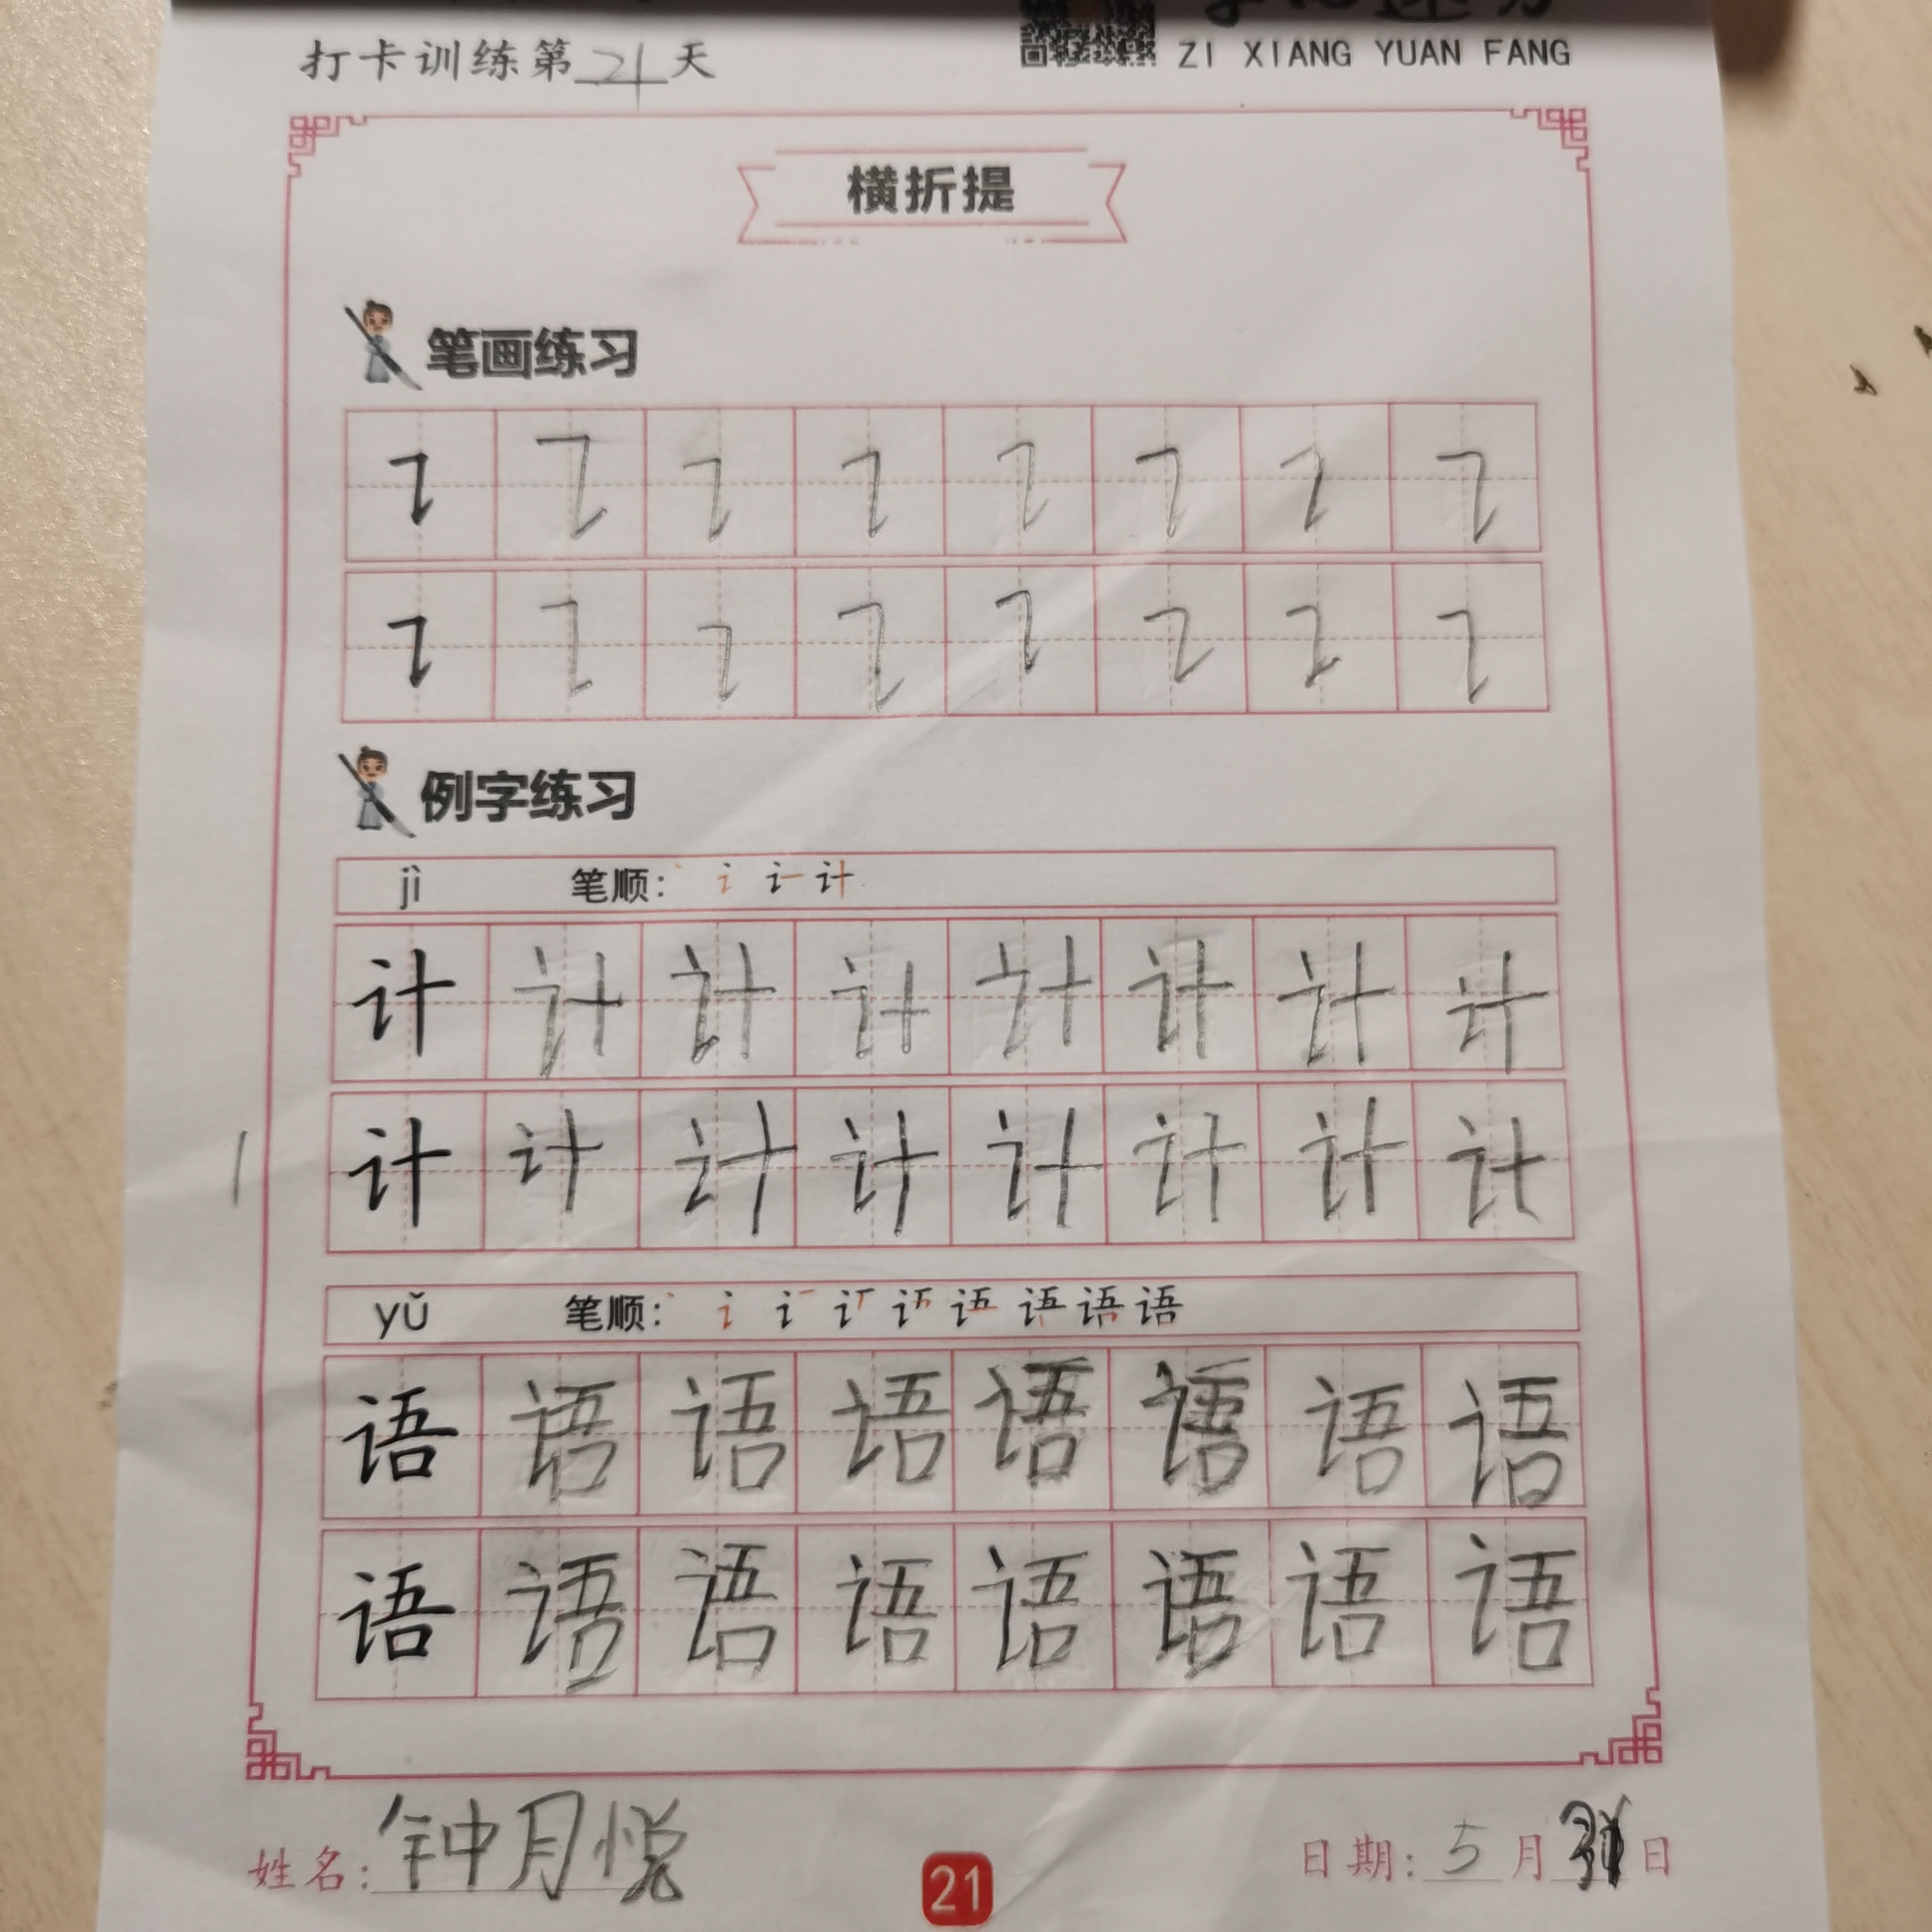 打卡训练第21天
ZI XIANG YUAN FANG
横折提
笔画练习
例字练习
jì 笔顺:
计 计 计 计 计 计 计 计
计 计 计 计 计 计 计 计
yǔ 笔顺: 语
语 语 语 语 语 语 语 语
语 语 语 语 语 语 语 语
姓名: 钟月悦
21
日期: 5 月 日